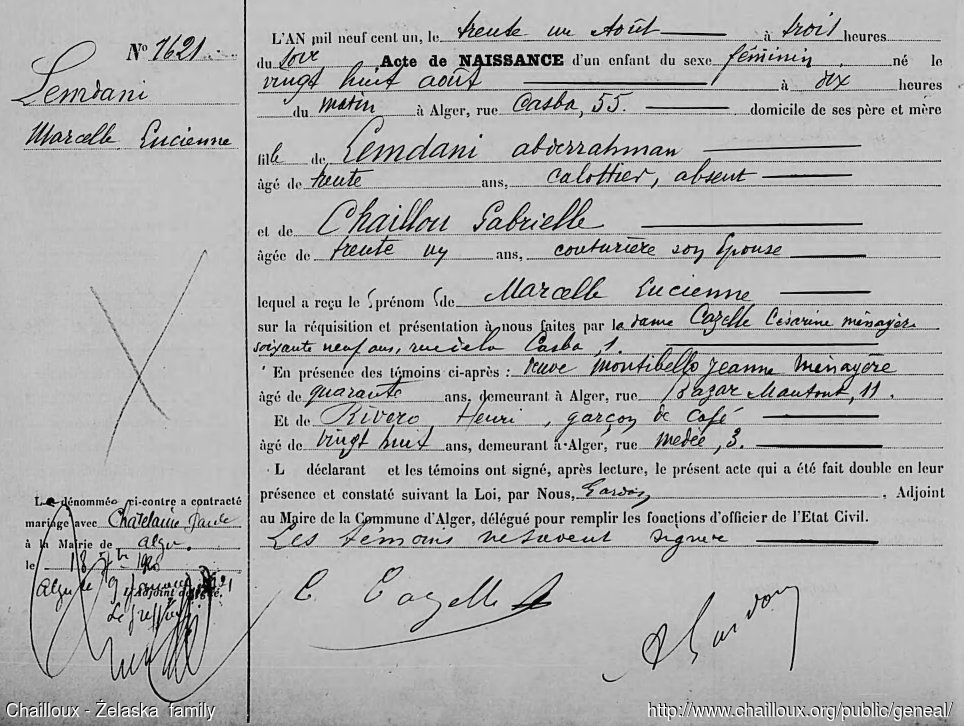 Nº 1621
Lemdani
Marcelle Lucienne
L'AN mil neuf cent un, le trente un Août à trois heures
du soir Acte de NAISSANCE d'un enfant du sexe féminin, né le
vingt huit août à dix heures
du matin à Alger, rue Casba, 55. domicile de ses père et mère
fille de Lemdani abderrahman
âgé de trente ans, calottier, absent
et de Chaillou Gabrielle
âgée de trente un ans, couturière son épouse
lequel a reçu le prénom de Marcelle Lucienne
sur la réquisition et présentation à nous faites par la dame Cazelle Césarine ménagère
soixante neuf ans, rue de la Casba, 1.
En présence des témoins ci-après : veuve Montibello Jeanne Ménagère
âgé de quarante ans, demeurant à Alger, rue Bazar Mantout, 11.
Et de Rivero Henri, garçon de Café
âgé de vingt huit ans, demeurant à Alger, rue Médée, 3.
L déclarant et les témoins ont signé, après lecture, le présent acte qui a été fait double en leur
présence et constaté suivant la Loi, par Nous, Gardon, Adjoint
au Maire de la Commune d'Alger, délégué pour remplir les fonctions d'officier de l'Etat Civil.
Les témoins ne savent signer
C Cazelle
Gardon
La dénommée ci-contre a contracté
mariage avec Chatelain
à la Mairie de Alger.
le 18
Alger le 9
L'Adjoint délégué,
Le greffier
Chailloux - Żelaska family
http://www.chailloux.org/public/geneal/